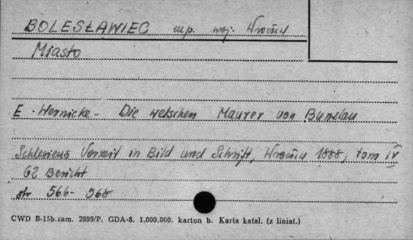 BOLESŁAWIEC mp. woj. Wrocław
Miasto
E. Wernicke - Die welschen Maurer von Bunzlau
Schlesiens Vorzeit in Bild und Schrift, Wrocław 1888, tom IV
62 Bericht
str 566-568
CWD B-15b. zam. 2899/P. GDA-8. 1.000.000. karton b. Karta katal. (z liniat.)